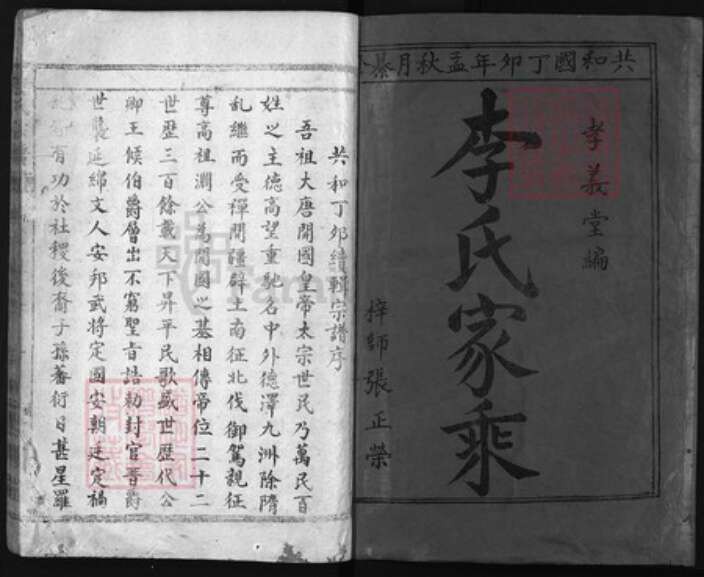 共和國丁卯年孟秋月
孝義堂編
李氏家乘
梓師張正榮
共和丁卯續輯宗譜序
吾祖大唐開國皇帝太宗世民乃萬民百
姓之主德高望重馳名中外德澤九洲除隋
乱繼而受禪開疆辟土南征北伐御駕親征
尊高祖淵公為開國之基相傳帝位二十二
世歷三百餘載天下昇平民歌盛世歷代公
卿王候伯爵層出不窮聖旨誥勅封官晋爵
世襲延綿文人安邦武將定國安朝廷定禍
乱每有功於社稷後裔子孫蕃衍日甚星羅